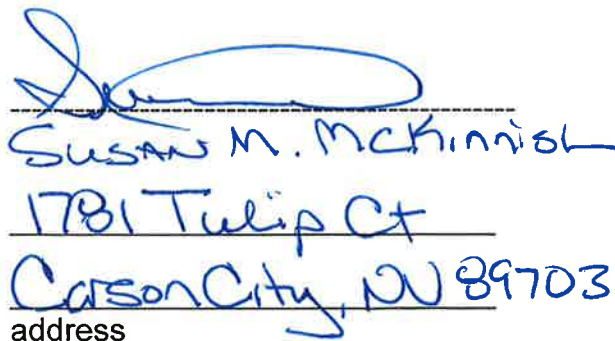 Susan M. McKinnish
1781 Tulip Ct
Carson City, NV 89703
address